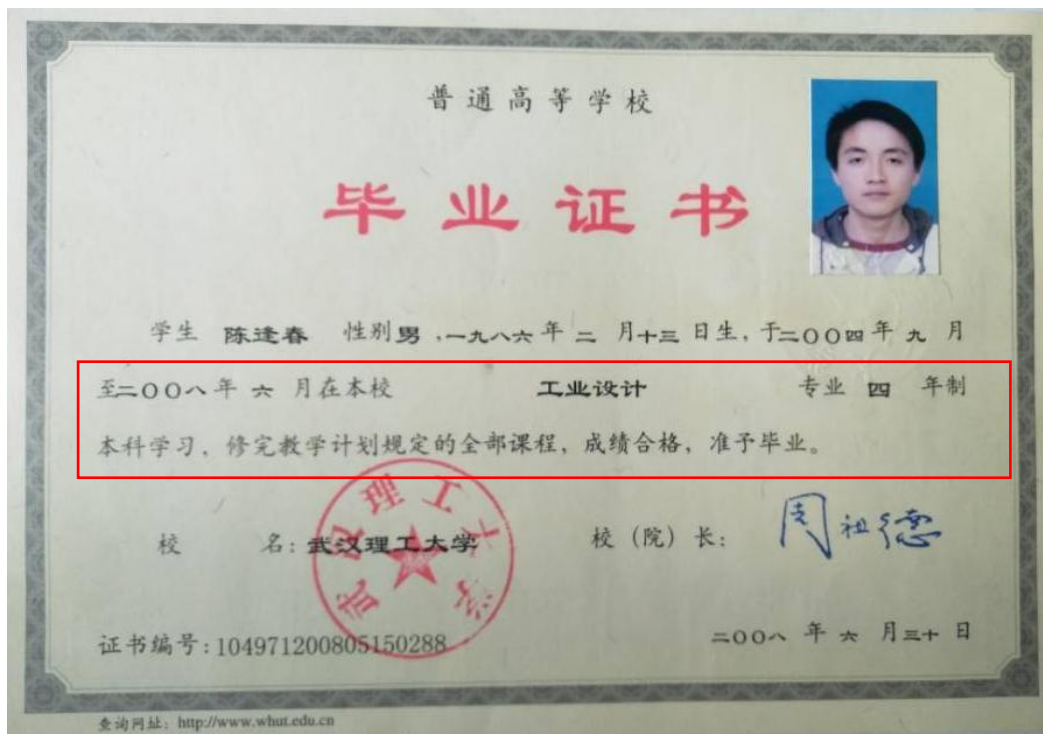 普通高等学校
毕业证书
学生 陈逢春 性别男，一九八六年 二 月十三 日生，于二〇〇四年 九 月
至二〇〇八年 六 月在本校 工业设计 专业 四 年制
本科学习，修完教学计划规定的全部课程，成绩合格，准予毕业。
校 名：武汉理工大学 校（院）长：周祖德
武汉理工大学
证书编号：104971200805150288 二〇〇八 年 六 月三十 日
查询网址：http://www.whut.edu.cn